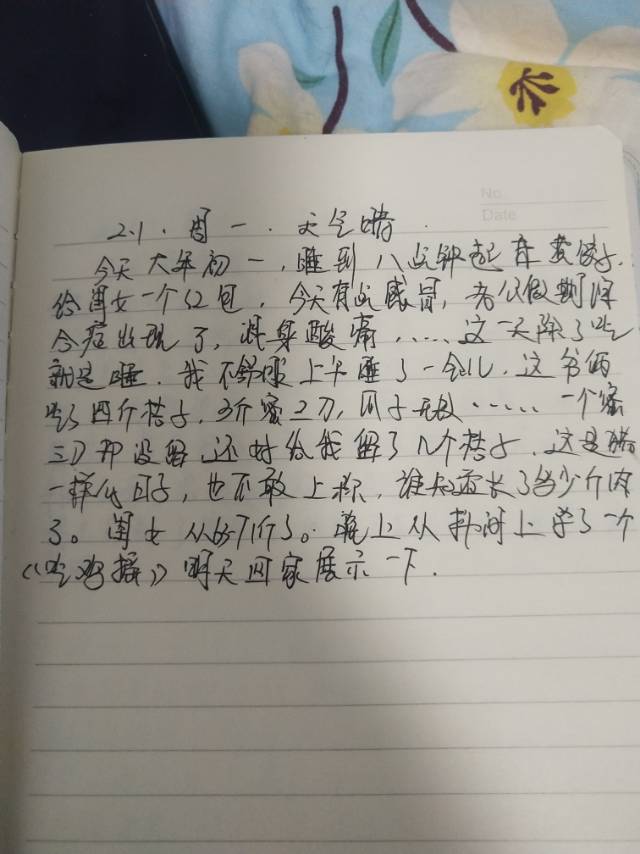 No.
Date
2.1. 周一. 天气晴.
今天大年初一,睡到八点钟起来煮饺子.
给闺女一个红包,今天有点感冒,老公假期综
合症出现了,浑身酸痛,……这一天除了吃
就是睡.我不舒服上午睡了一会儿,这爷俩
吃了四个桔子,3个蜜三刀,瓜子无数……一个蜜
三刀都没留,还好给我留了几个桔子.这是猪
一样的日子,也不敢上称,谁知道长了多少斤肉
了。闺女从好了。晚上从抖闹上学了一个
《吃鸡操》明天回家展示一下.